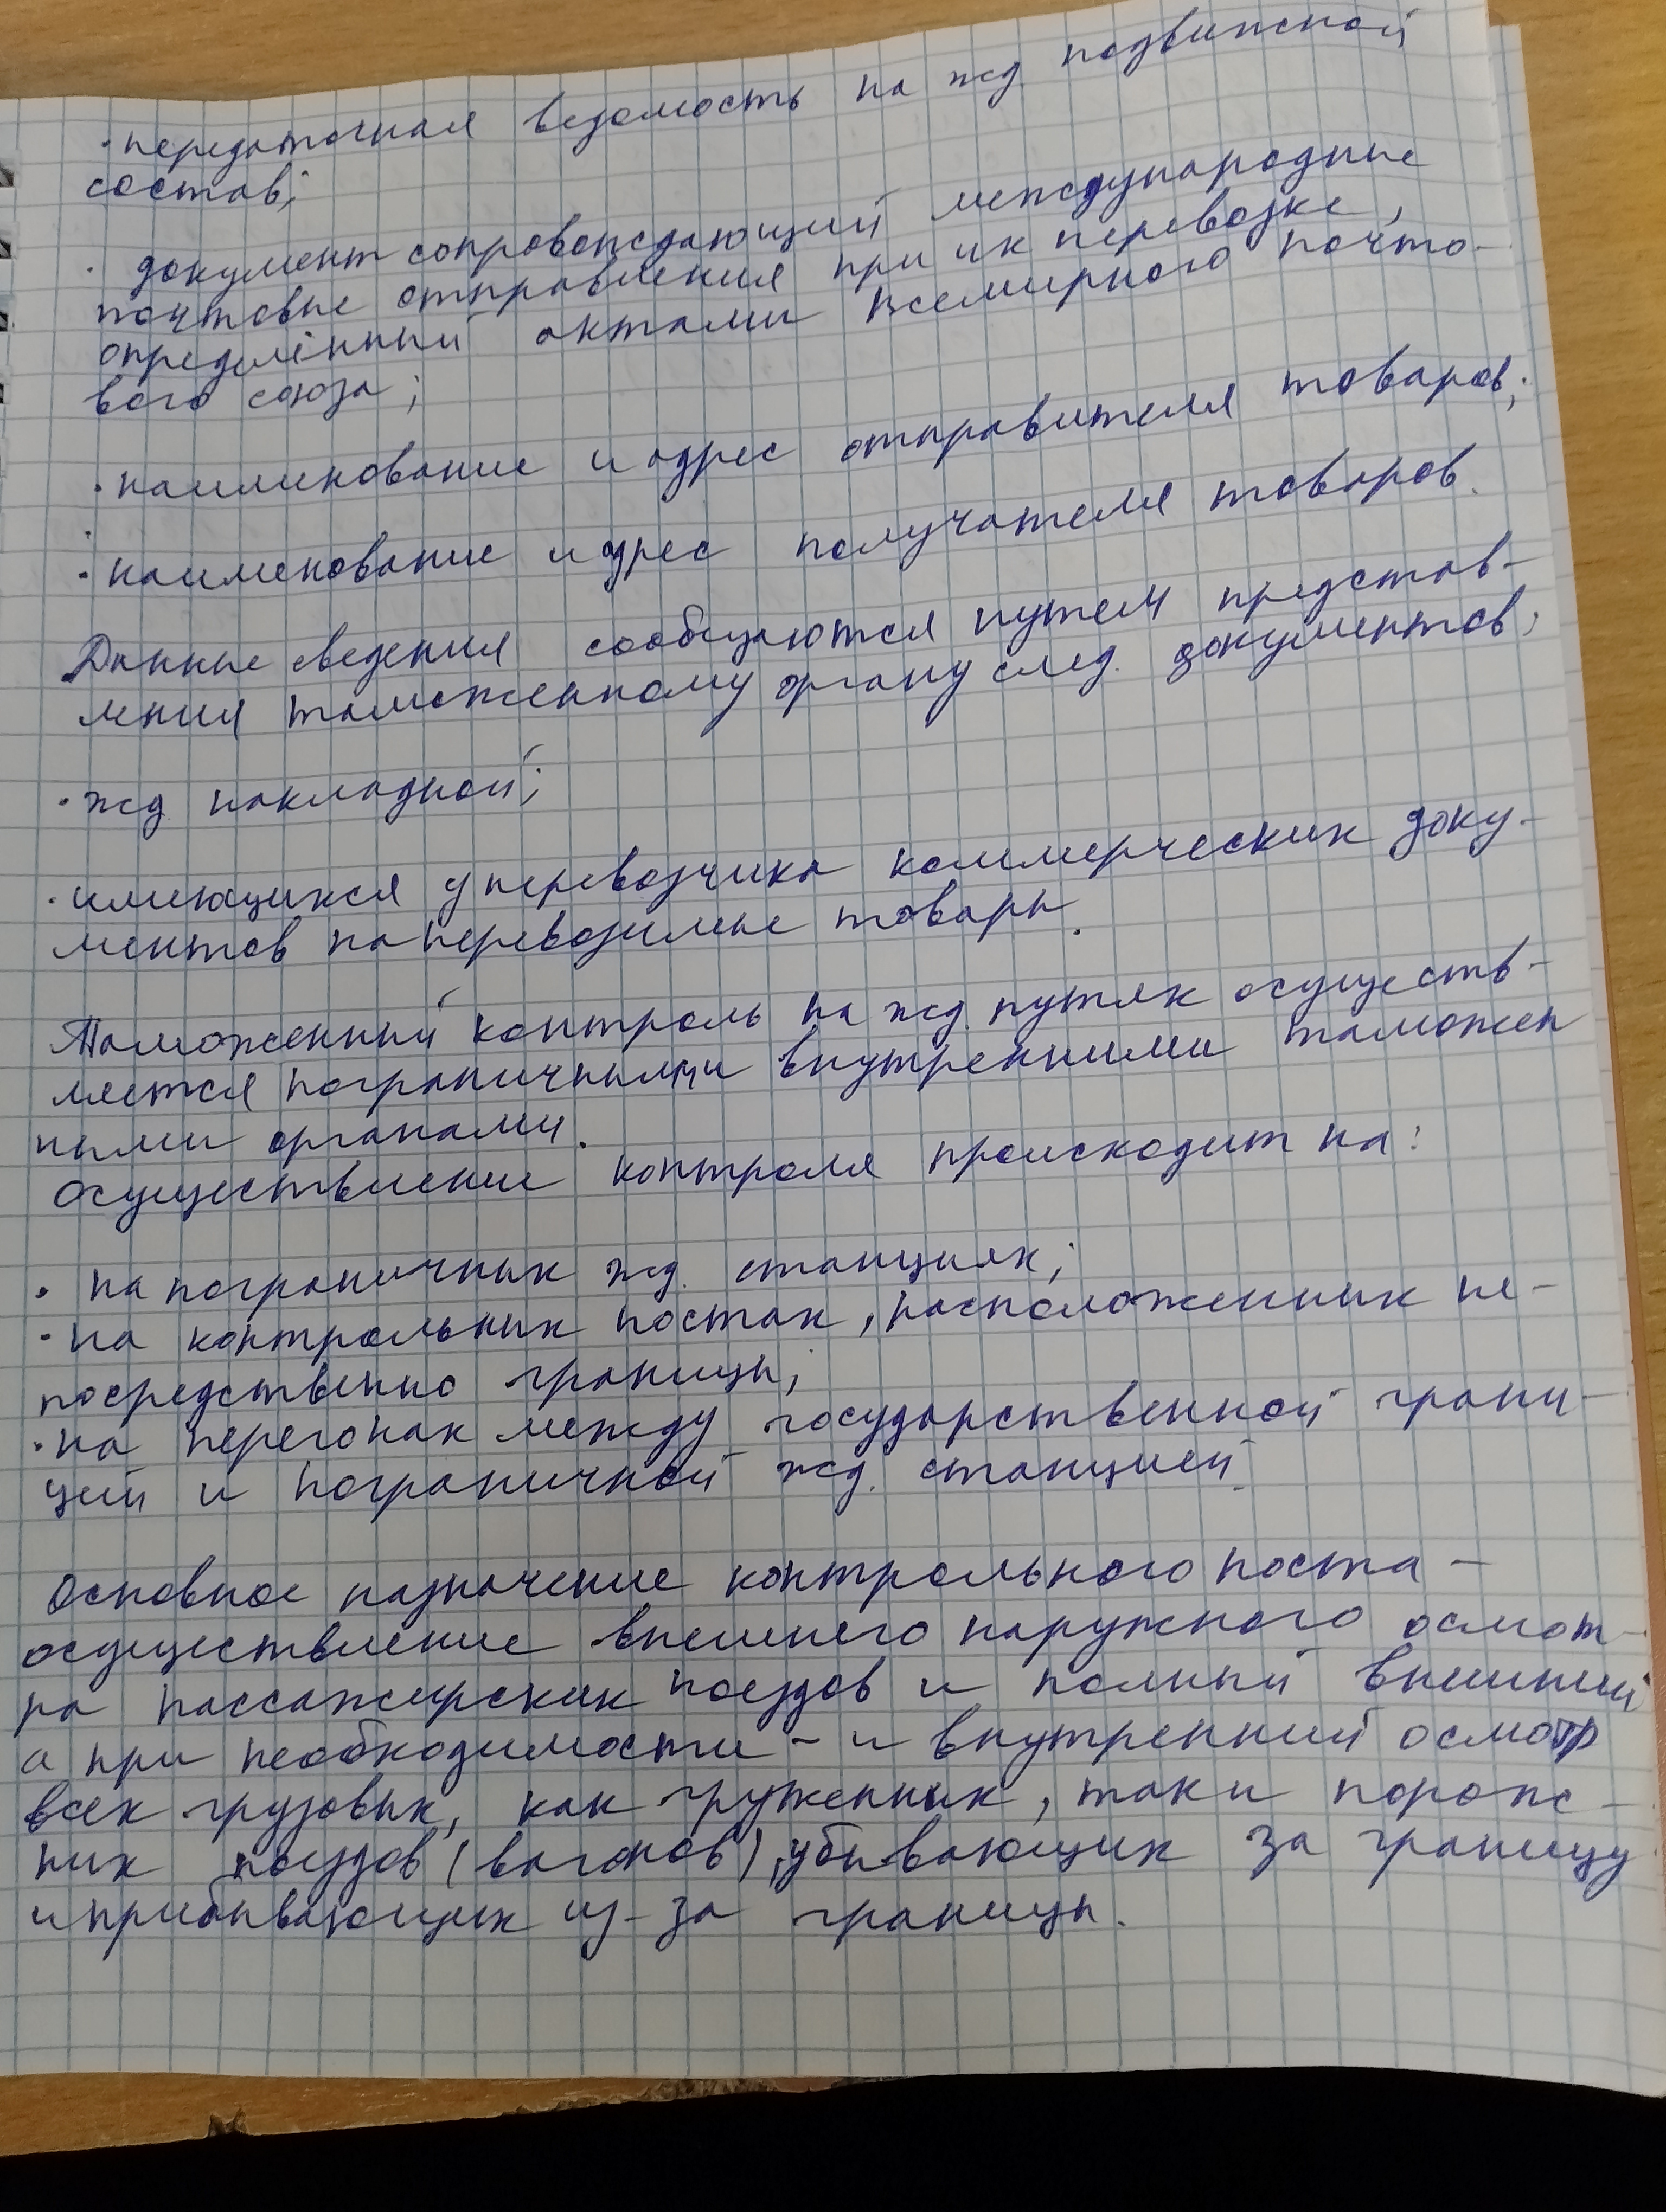 · передаточная ведомость на жд. подвижной
состав;
· документ сопровождающий международные
почтовые отправления при их перевозке,
определённый актами всемирного почто-
вого союза;
· наименование и адрес отправителя товаров;
· наименование и адрес получателя товаров.
Данные сведения сообщаются путем представ-
ления таможенному органу след. документов:
· жд накладной;
· имеющихся у перевозчика коммерческих доку-
ментов на перевозимые товары.
Таможенный контроль на жд. путях осуществ-
ляется пограничными и внутренними таможен
ными органами.
Осуществление контроля происходит на:
· на пограничных жд. станциях;
· на контрольных постах, расположенных не-
посредственно границы;
· на перегонах между государственной грани-
цей и пограничной жд. станцией.
Основное назначение контрольного поста -
осуществление внешнего наружного осмот-
ра пассажирских поездов и полный внешний
а при необходимости - и внутренний осмотр
всех грузовых, как груженных, так и порож-
них поездов (вагонов), убывающих за границу
и прибывающих из-за границы.